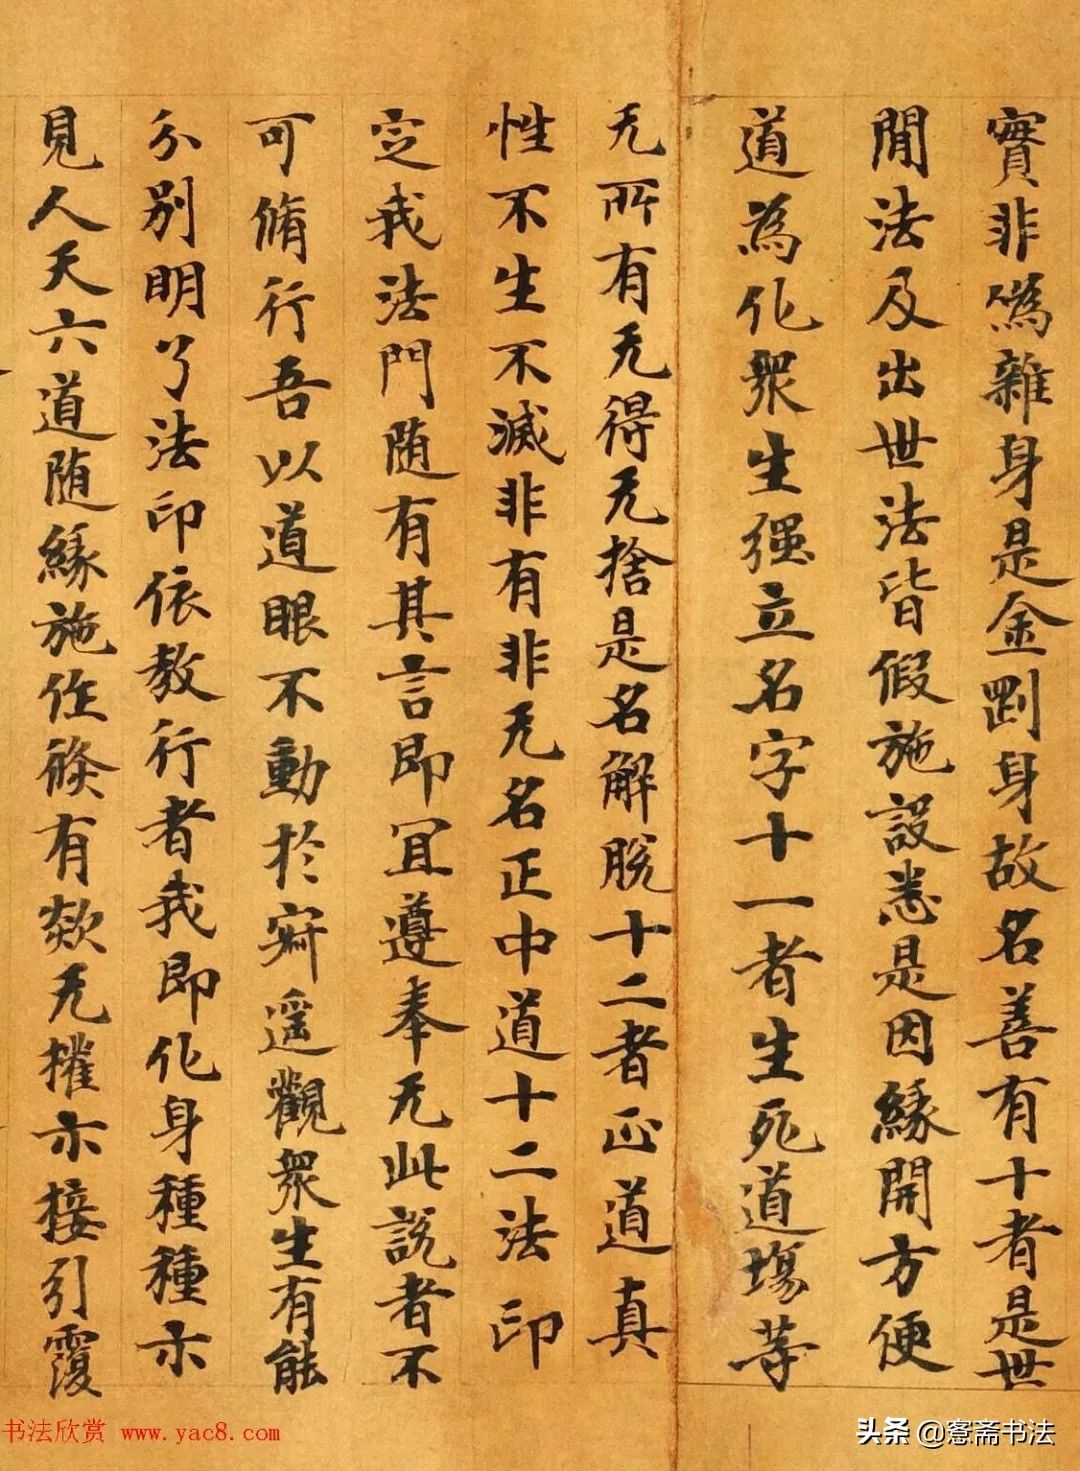 實非偽雜身是金剛身故名善有十者是世
間法及出世法皆假施設悉是因緣開方便
道為化眾生強立名字十一者生死道場等
无所有无得无捨是名解脫十二者正道真
性不生不滅非有非无名正中道十二法印
定我法門随有其言即冝遵奉无此說者不
可脩行吾以道眼不動於寂遥觀眾生有能
分別明了法印依教行者我即化身種種示
見人天六道随緣施作條有欻无摧示接引覆
书法欣赏 www.yac8.com
头条 @蹇斋书法